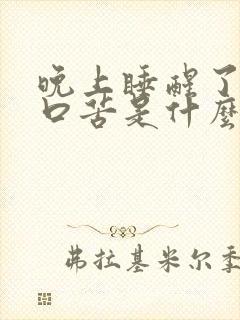 晚上睡醒了
口苦是什麼
弗拉基米尔季